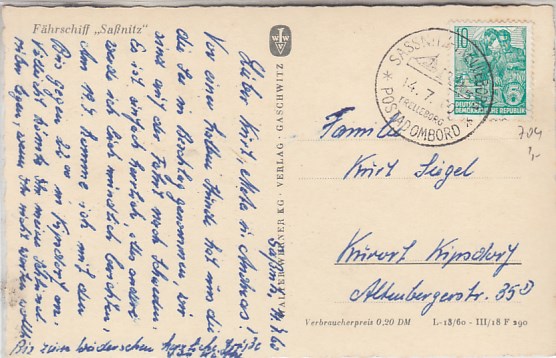 Fährschiff „Saßnitz"
Saßnitz, 14. 7. 60
Lieber Kurt, Meta u. Andreas!
Vor einer halben Stunde hat uns die
die See in Beschlag genommen, wir
sind auf der Fahrt nach Schweden.
Es ist einfach herrlich, alles andere
werde ich Euch mündlich berichten,
Am 19.7. komme ich mit dem
Bus gegen 22 00 in Kipsdorf an,
Vielleicht könnte Ihr meine
sagen, wenn
Bis zum Wiedersehen herzliche Grüße
WALTER WERNER KG · VERLAG · GASCHWITZ
SASSNITZ
TRELLEBORG
14. 7.
POST ADOMBORD
10
DEUTSCHE
DEMOKRATISCHE REPUBLIK
Familie
Kurt Siegel
Kurort Kipsdorf
Altenbergerstr. 35 D
Verbraucherpreis 0,20 DM L-13/60 - III/18 F 290